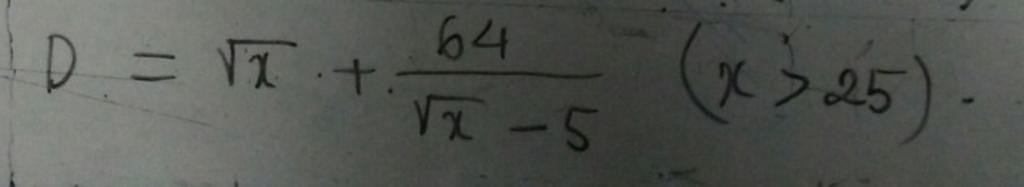 D = √x + 64/(√x - 5) (x > 25).